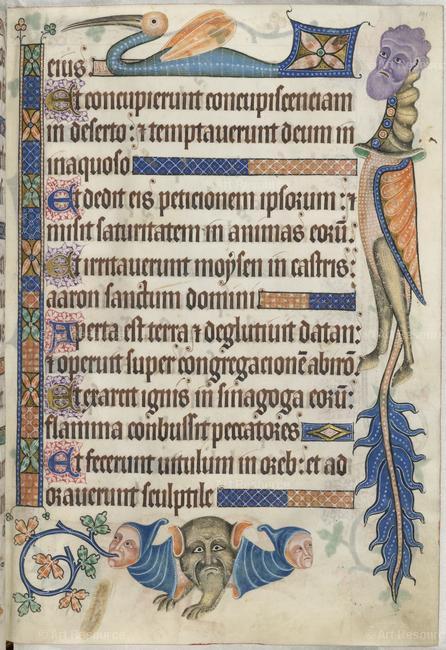 eius.
Et concupierunt concupiscenciam
in deserto: ⁊ temptauerunt deum in
inaquoso
Et dedit eis peticionem ipsorum: ⁊
misit saturitatem in animas eorū:
Et irritauerunt moysen in castris:
aaron sanctum domini
Aperta est terra ⁊ deglutiuit datan:
⁊ operuit super congregacionē abiron
Et exarcit ignis in sinagoga eorū:
flamma conbussit peccatores
Et fecerunt uitulum in oreb: et ad
orauerunt sculptile